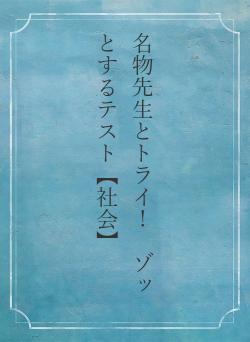 名物先生とトライ！　ゾッ
とするテスト【社会】